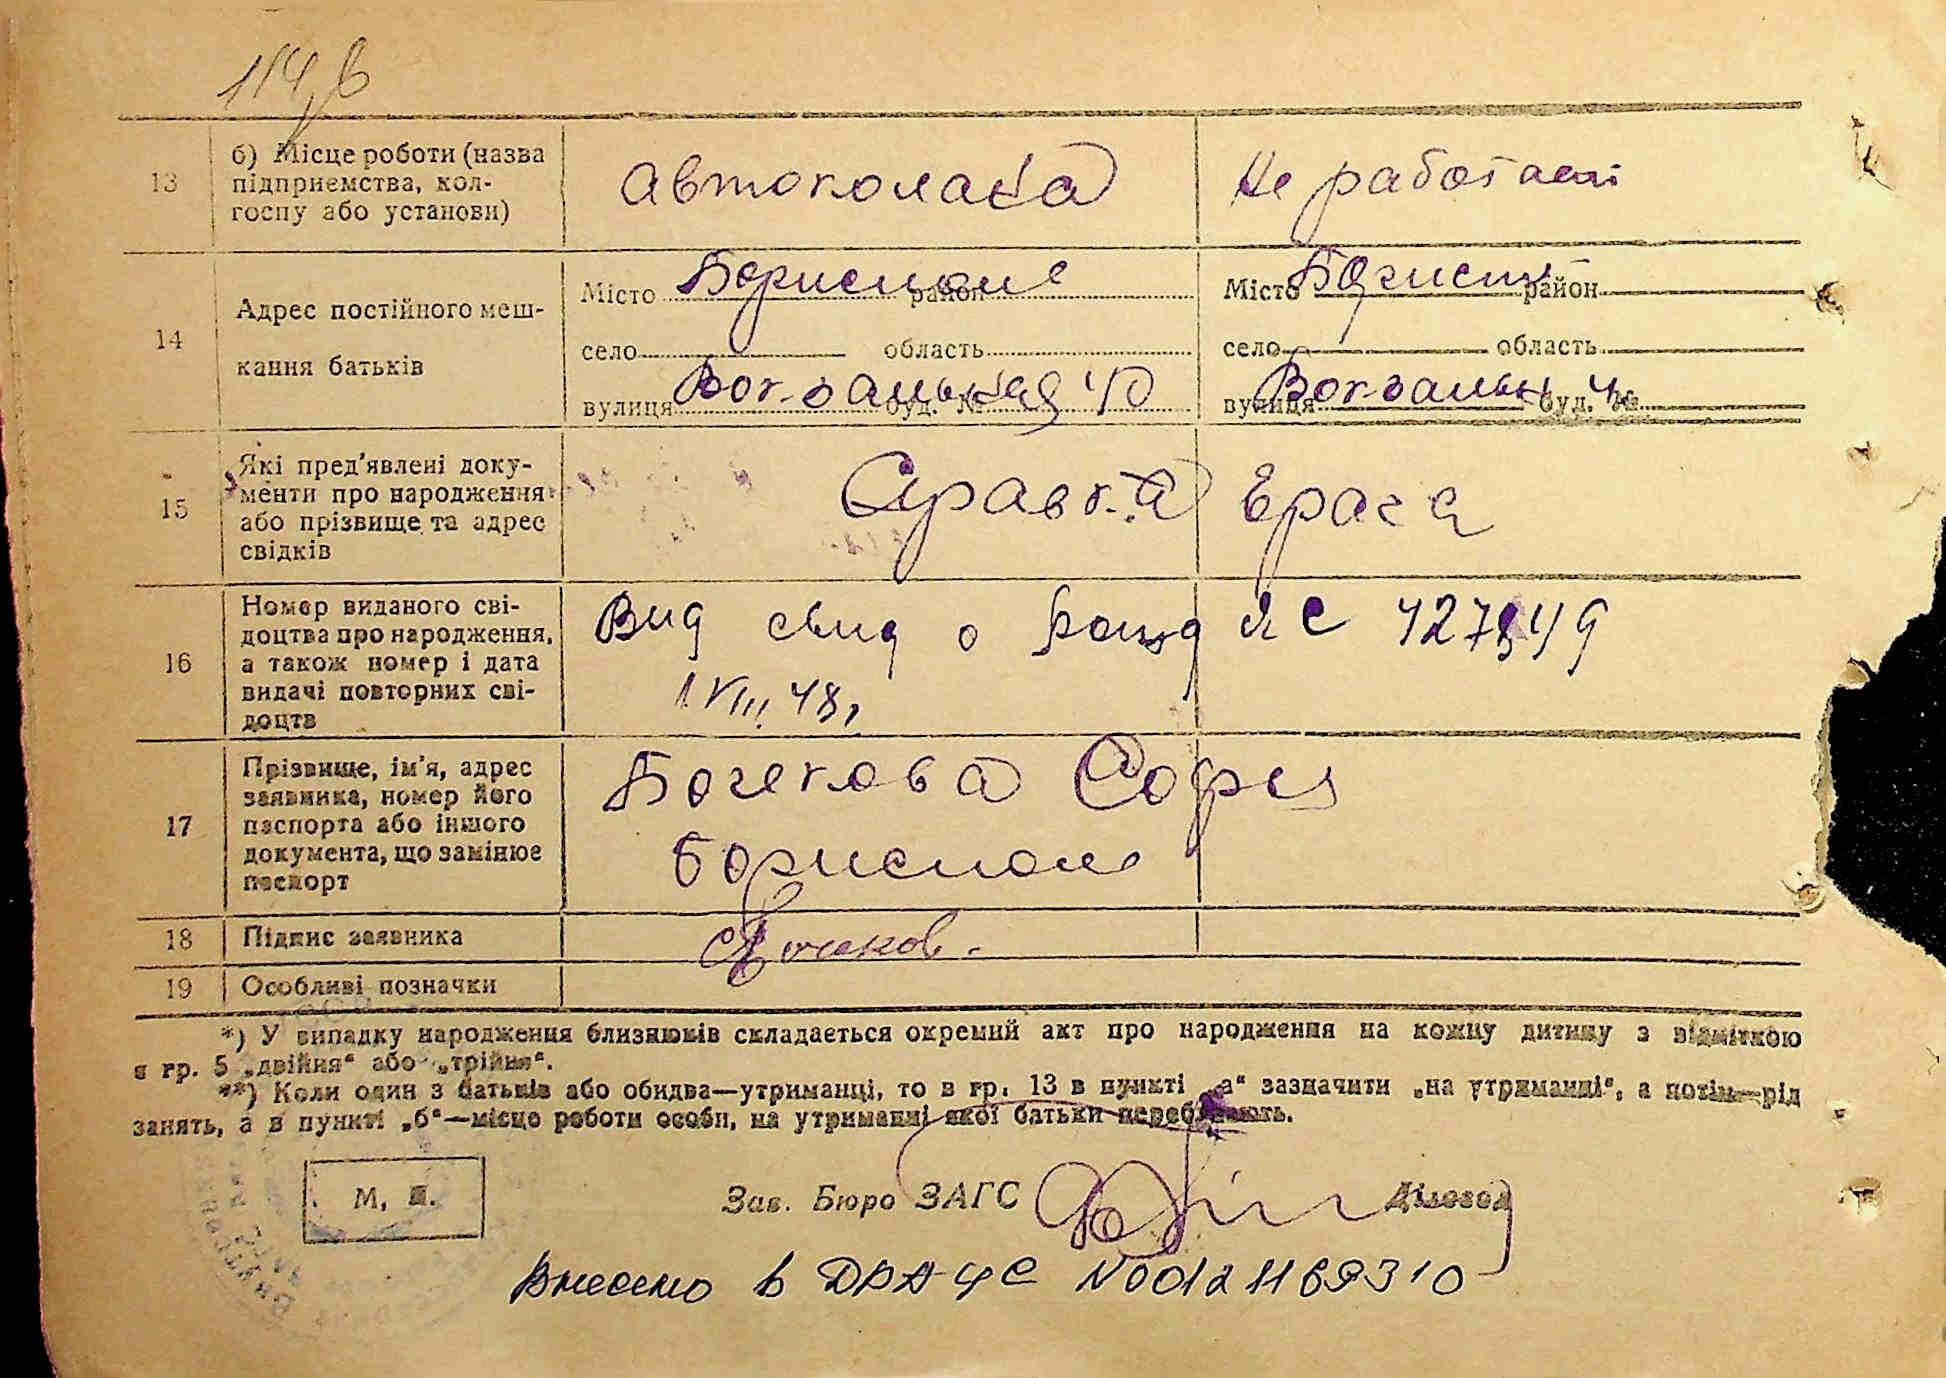 114 в
13 б) Місце роботи (назва підприємства, колгоспу або установи) Автоколона Не работает
14 Адрес постійного мешкання батьків
Місто Борисполе район Місто Борисп район
село область село область
вулиця Вокзальная буд. № 40 вулиця Вокзальн буд. № 40
15 Які пред'явлені документи про народження або прізвище та адрес свідків Справка Врача
16 Номер виданого свідоцтва про народження, а також номер і дата видачі повторних свідоцтв Вид свид о рожд ЯС
1 VIII 48
17 Прізвище, ім'я, адрес заявника, номер його паспорта або іншого документа, що замінює паспорт Бочекова Софья
Борисполе
18 Підпис заявника
19 Особливі позначки
*) У випадку народження близнюків складається окремий акт про народження на кожну дитину з відміткою
в гр. 5 „двійня“ або „трійня“.
**) Коли один з батьків або обидва—утриманці, то в гр. 13 в пункті „а“ зазначити „на утриманні“, а потім—рід
занять, а в пункті „б“—місце роботи особи, на утриманні якої батьки перебувають.
М. П. Зав. Бюро ЗАГС Діловод
Внесено в ДРАЦС №00121169310